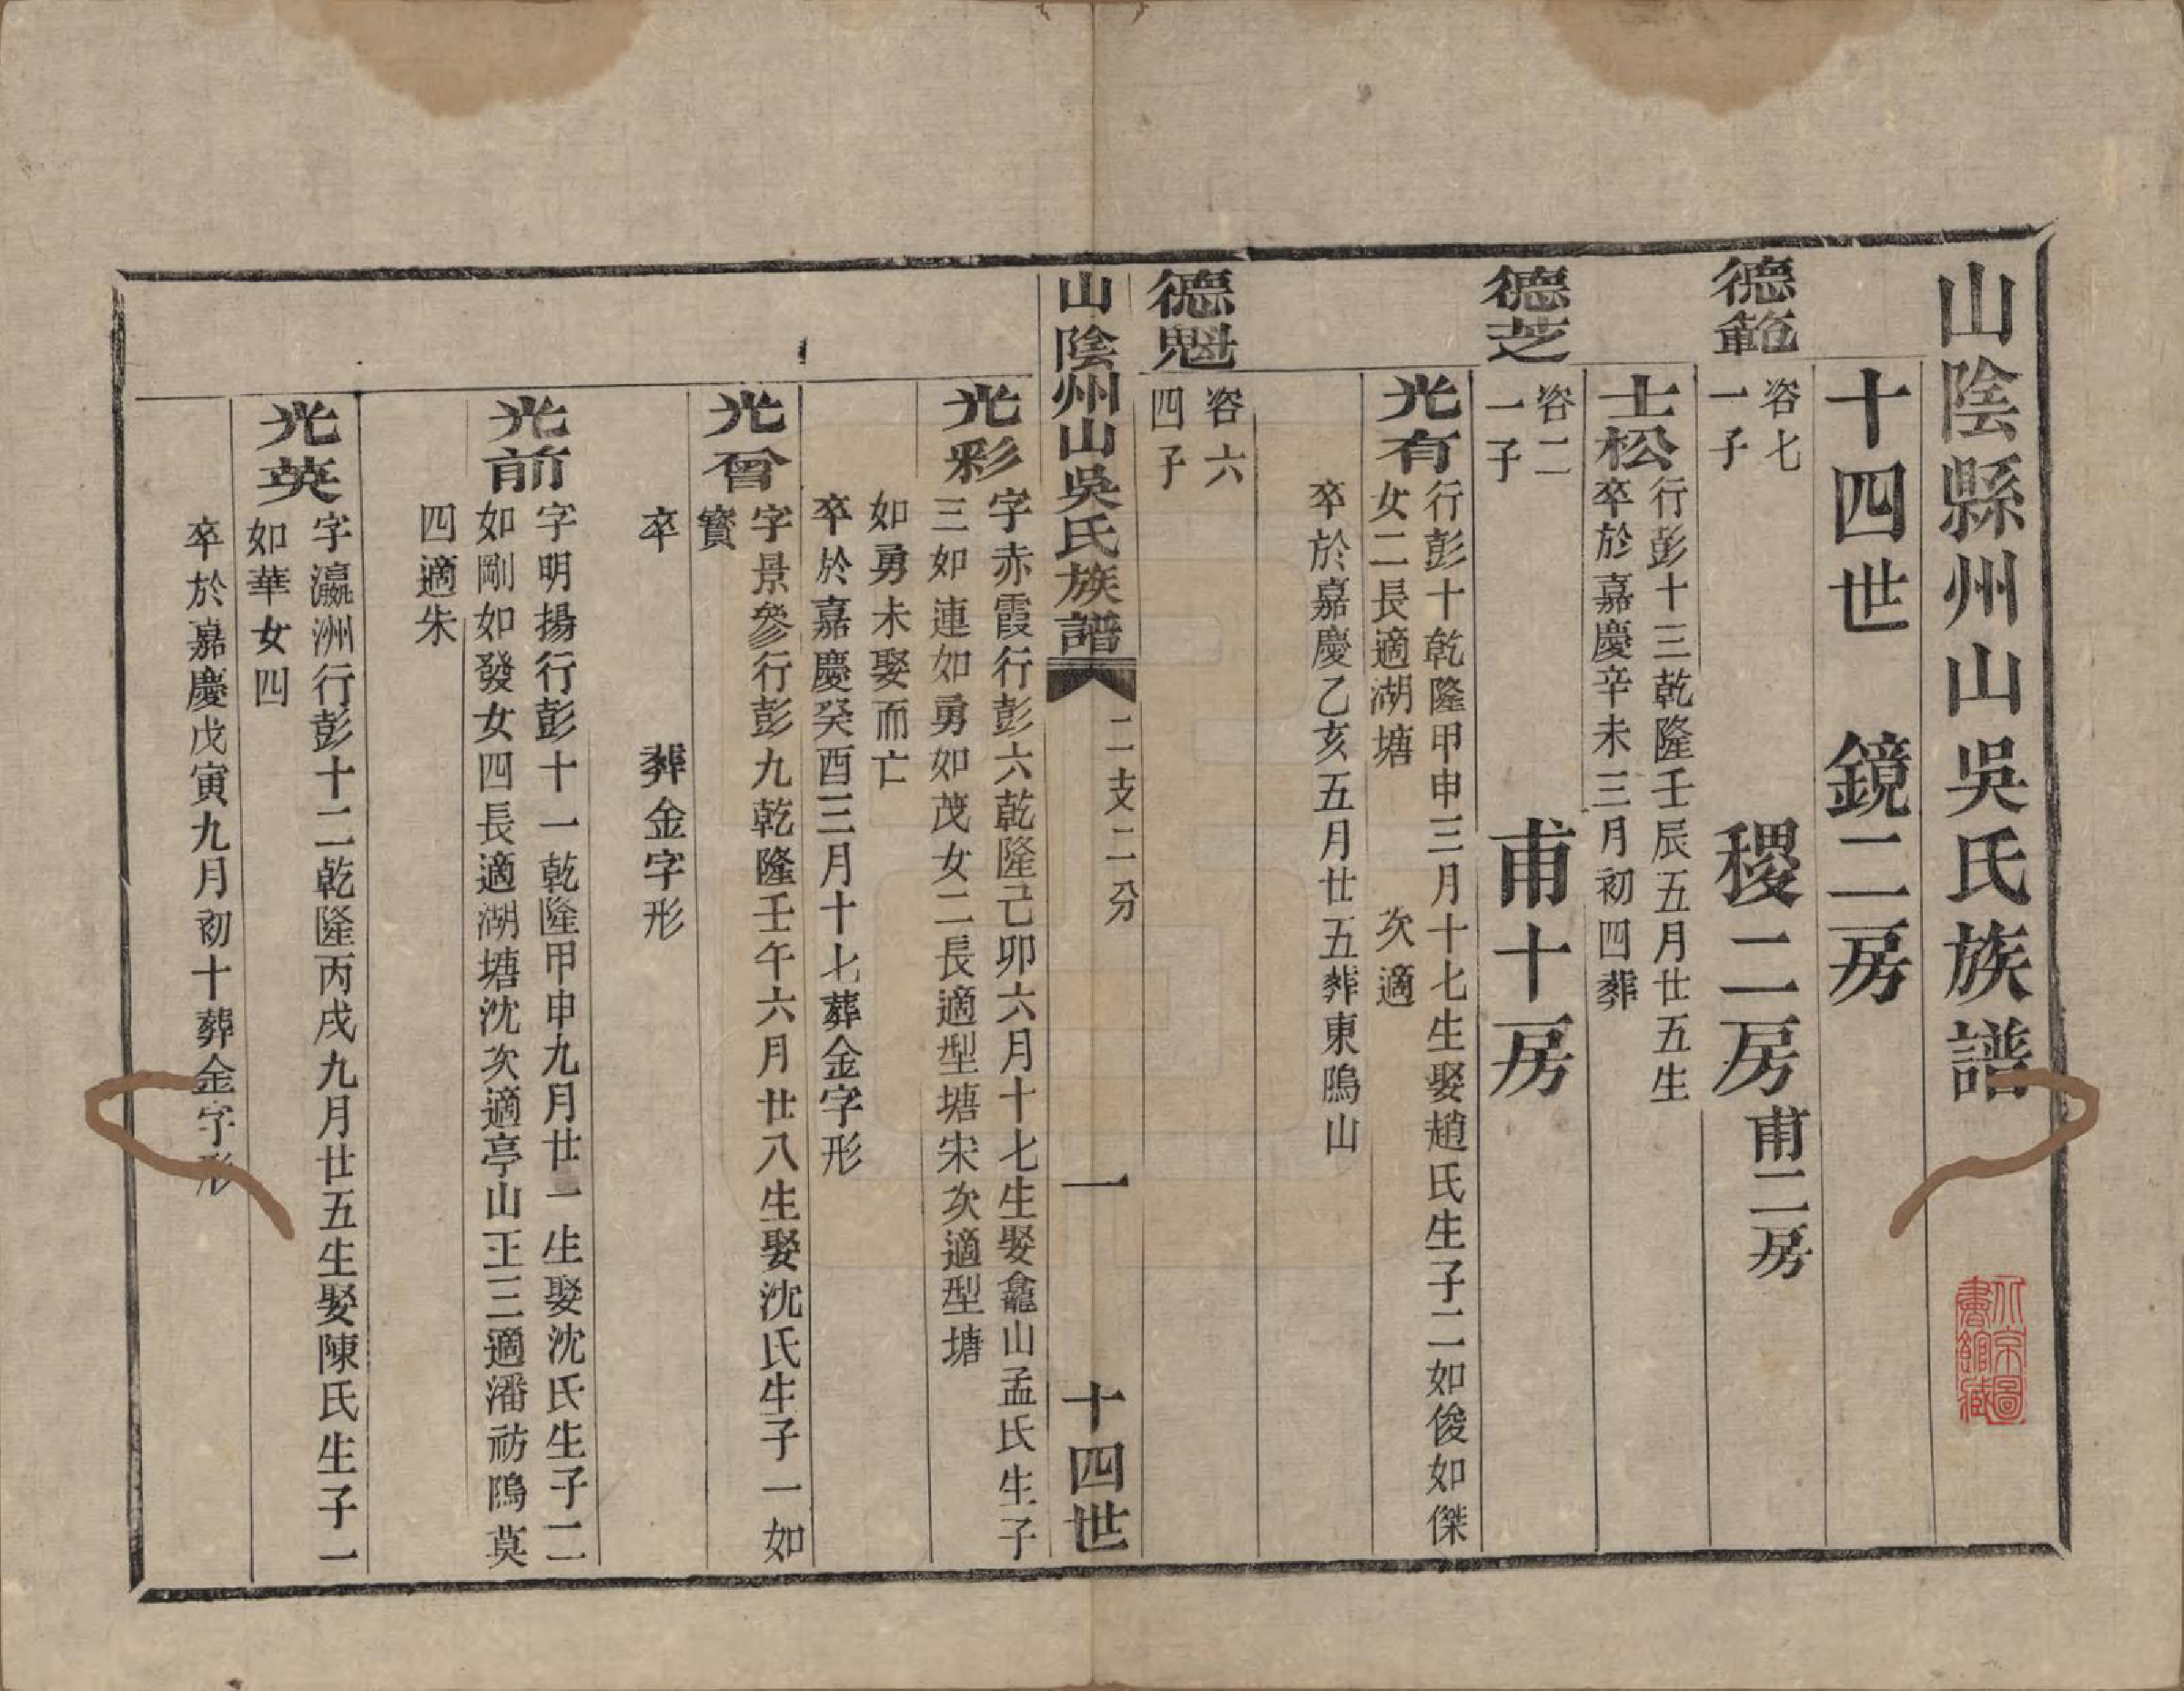 山陰縣州山吳氏族譜
十四世　鏡二房
德範
容七
一子
稷二房甫二房
士松
行彭十三乾隆壬辰五月廿五生
卒於嘉慶辛未三月初四葬
德芝
容二
一子
甫十房
光有
行彭十乾隆甲申三月十七生娶趙氏生子二如俊如傑
女二長適湖塘　次適
卒於嘉慶乙亥五月廿五葬東隝山
德魁
容六
四子
山陰州山吳氏族譜
二支二分
一
十四世
光彩
字赤霞行彭六乾隆己卯六月十七生娶龕山孟氏生子
三如連如勇如茂女二長適型塘宋次適型塘
如勇未娶而亡
卒於嘉慶癸酉三月十七葬金字形
光曾
字景參行彭九乾隆壬午六月廿八生娶沈氏生子一如
賓
卒　葬金字形
光前
字明揚行彭十一乾隆甲申九月廿一生娶沈氏生子二
如剛如發女四長適湖塘沈次適亭山王三適潘祊隝莫
四適朱
光英
字瀛洲行彭十二乾隆丙戌九月廿五生娶陳氏生子一
如華女四
卒於嘉慶戊寅九月初十葬金字形